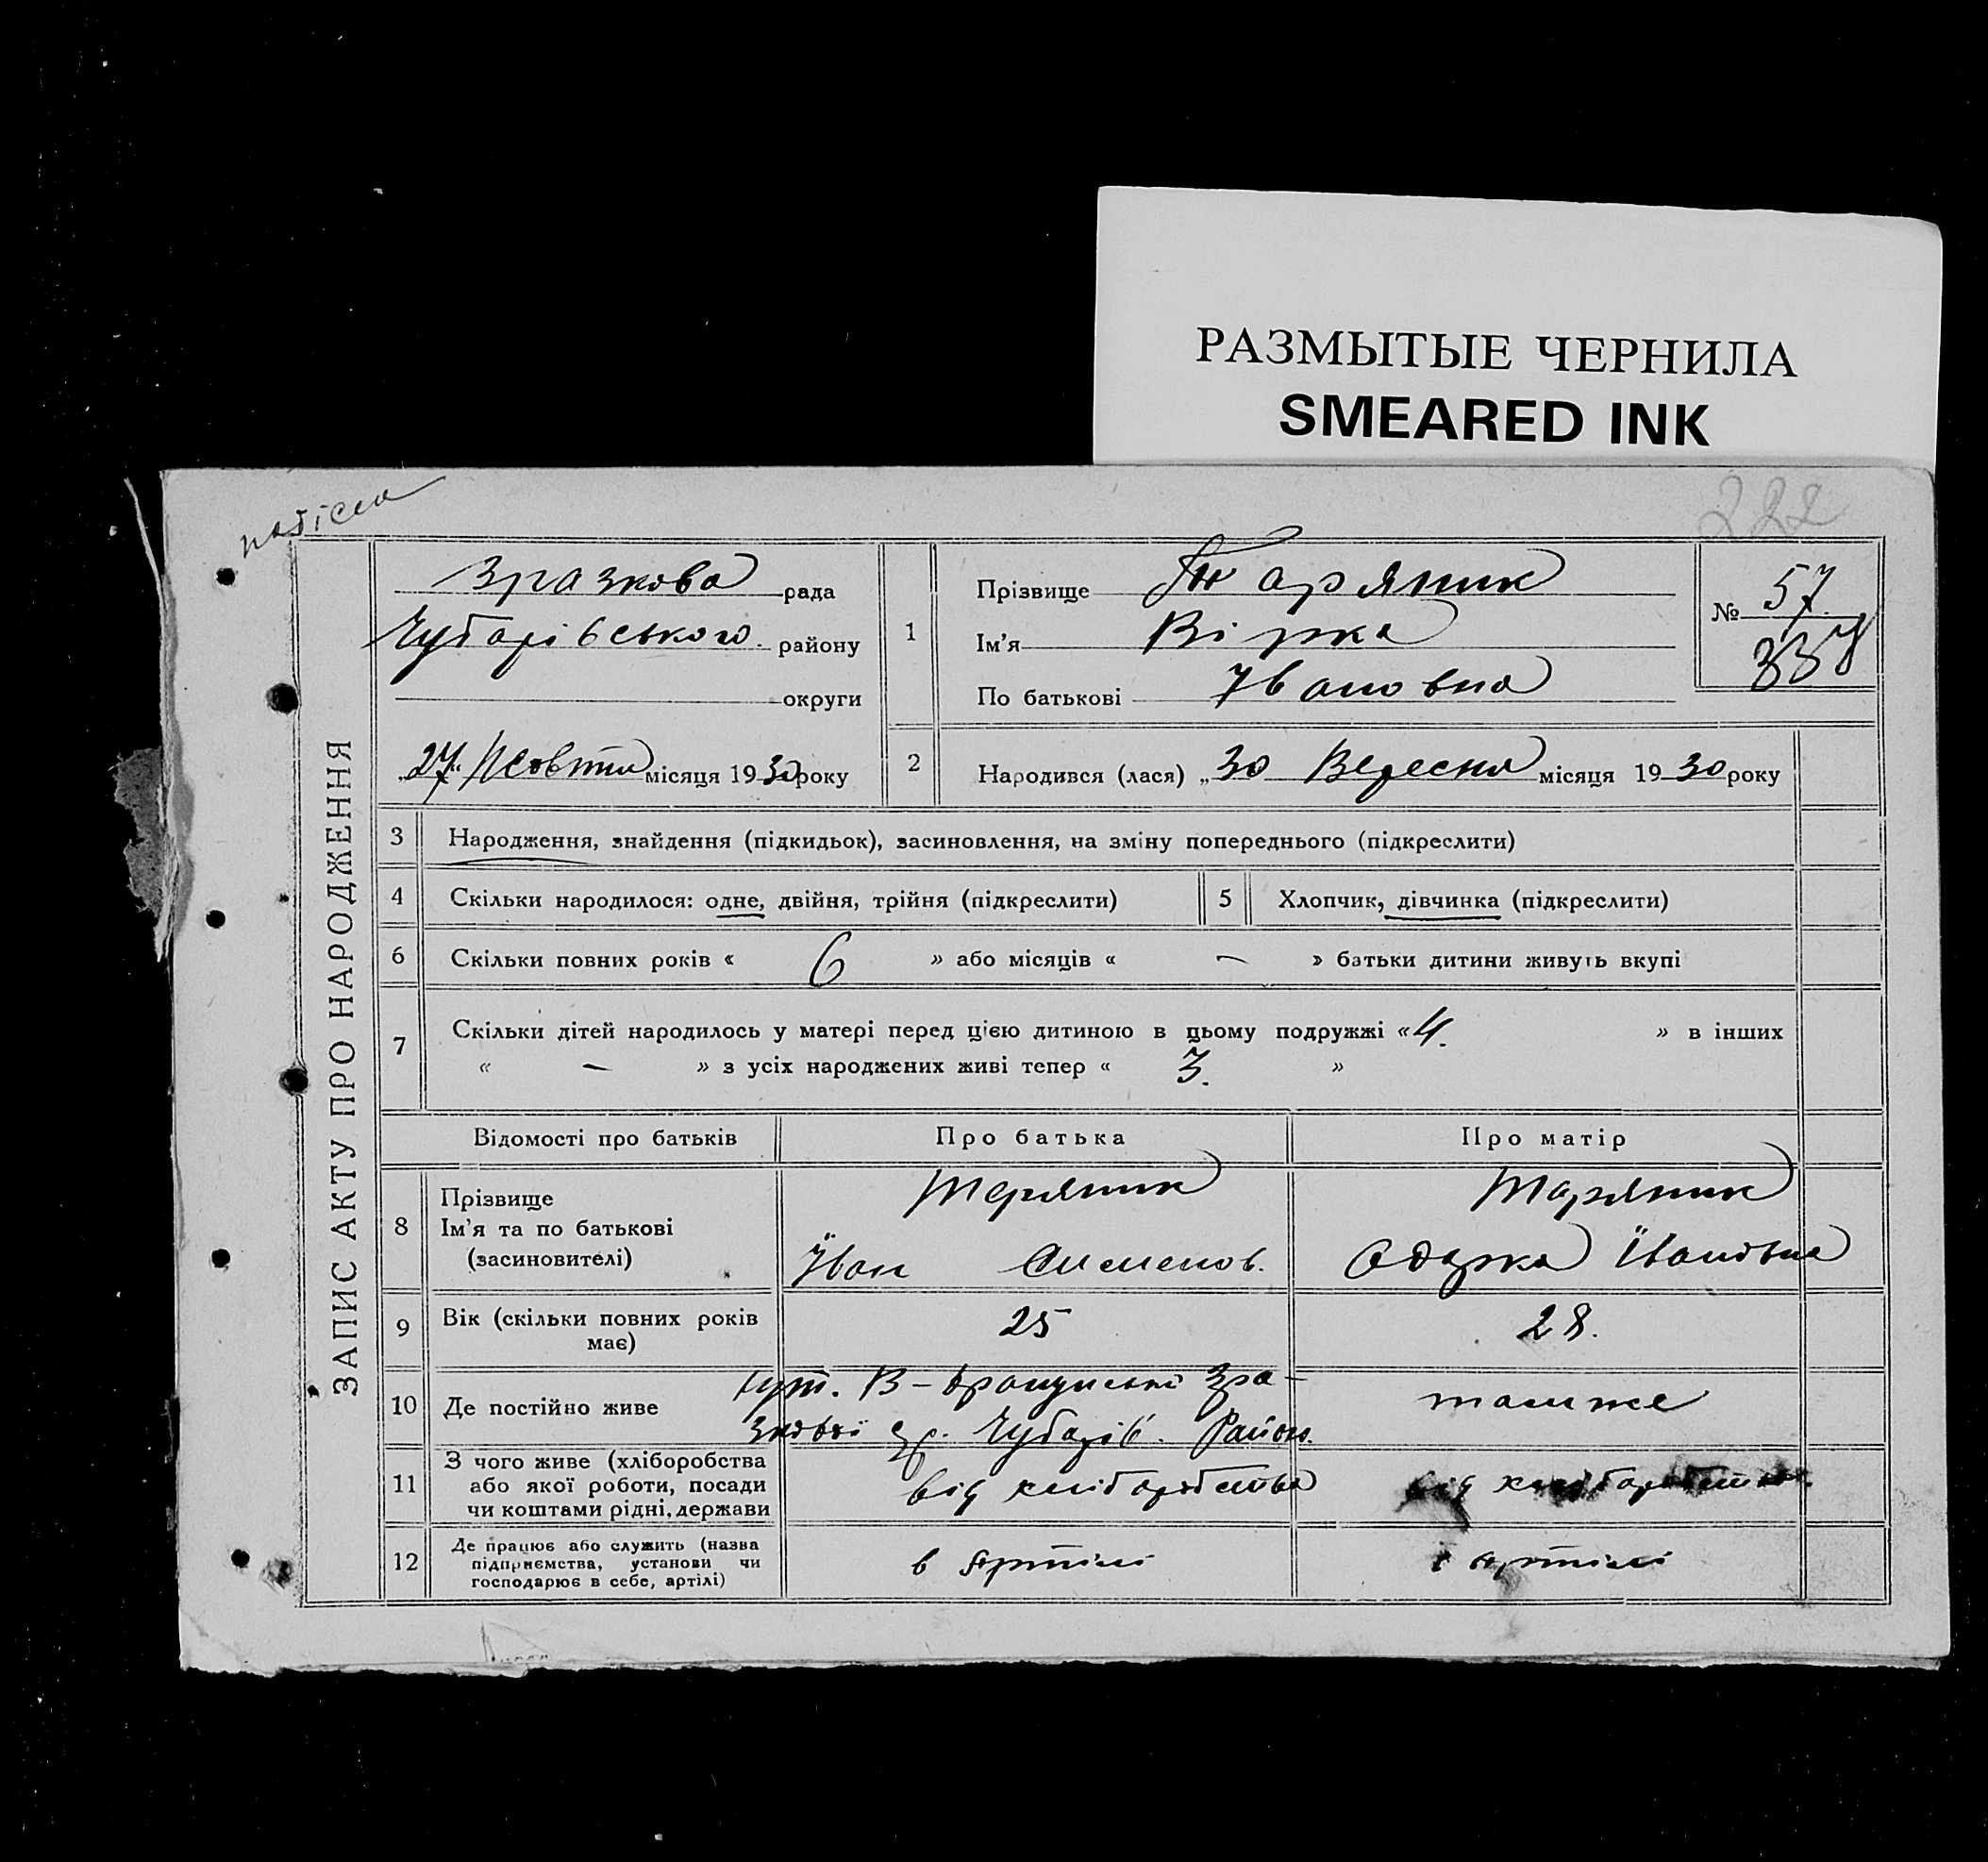 РАЗМЫТЫЕ ЧЕРНИЛА
SMEARED INK
222
ЗАПИС АКТУ ПРО НАРОДЖЕННЯ
Зразкова рада
Чубарівського району
округи
„27“ Жовтня місяця 1930 року
1
Прізвище Таряник
Ім'я Вірка
По батькові Івановна
№ 57
338
2 Народився (лася) „30 Вересня місяця 1930 року
3 Народження, знайдення (підкидьок), засиновлення, на зміну попереднього (підкреслити)
4 Скільки народилося: одне, двійня, трійня (підкреслити) 5 Хлопчик, дівчинка (підкреслити)
6 Скільки повних років « 6 » або місяців « — » батьки дитини живуть вкупі
7 Скільки дітей народилось у матері перед цією дитиною в цьому подружжі « 4. » в інших
« — » з усіх народжених живі тепер « 3. »
Відомості про батьків Про батька Про матір
8 Прізвище
Ім'я та по батькові
(засиновителі)
Таряник
Іван Семенов.
Таряник
Одарка Івановна
9 Вік (скільки повних років має) 25 28.
10 Де постійно живе
хут. В- Зра-
зкової Чубарів. Район.
також
11 З чого живе (хліборобства
або якої роботи, посади
чи коштами рідні, держави
від хліборобства від хліборобства
12 Де працює або служить (назва
підприємства, установи чи
господарює в себе, артілі)
в артілі в артілі